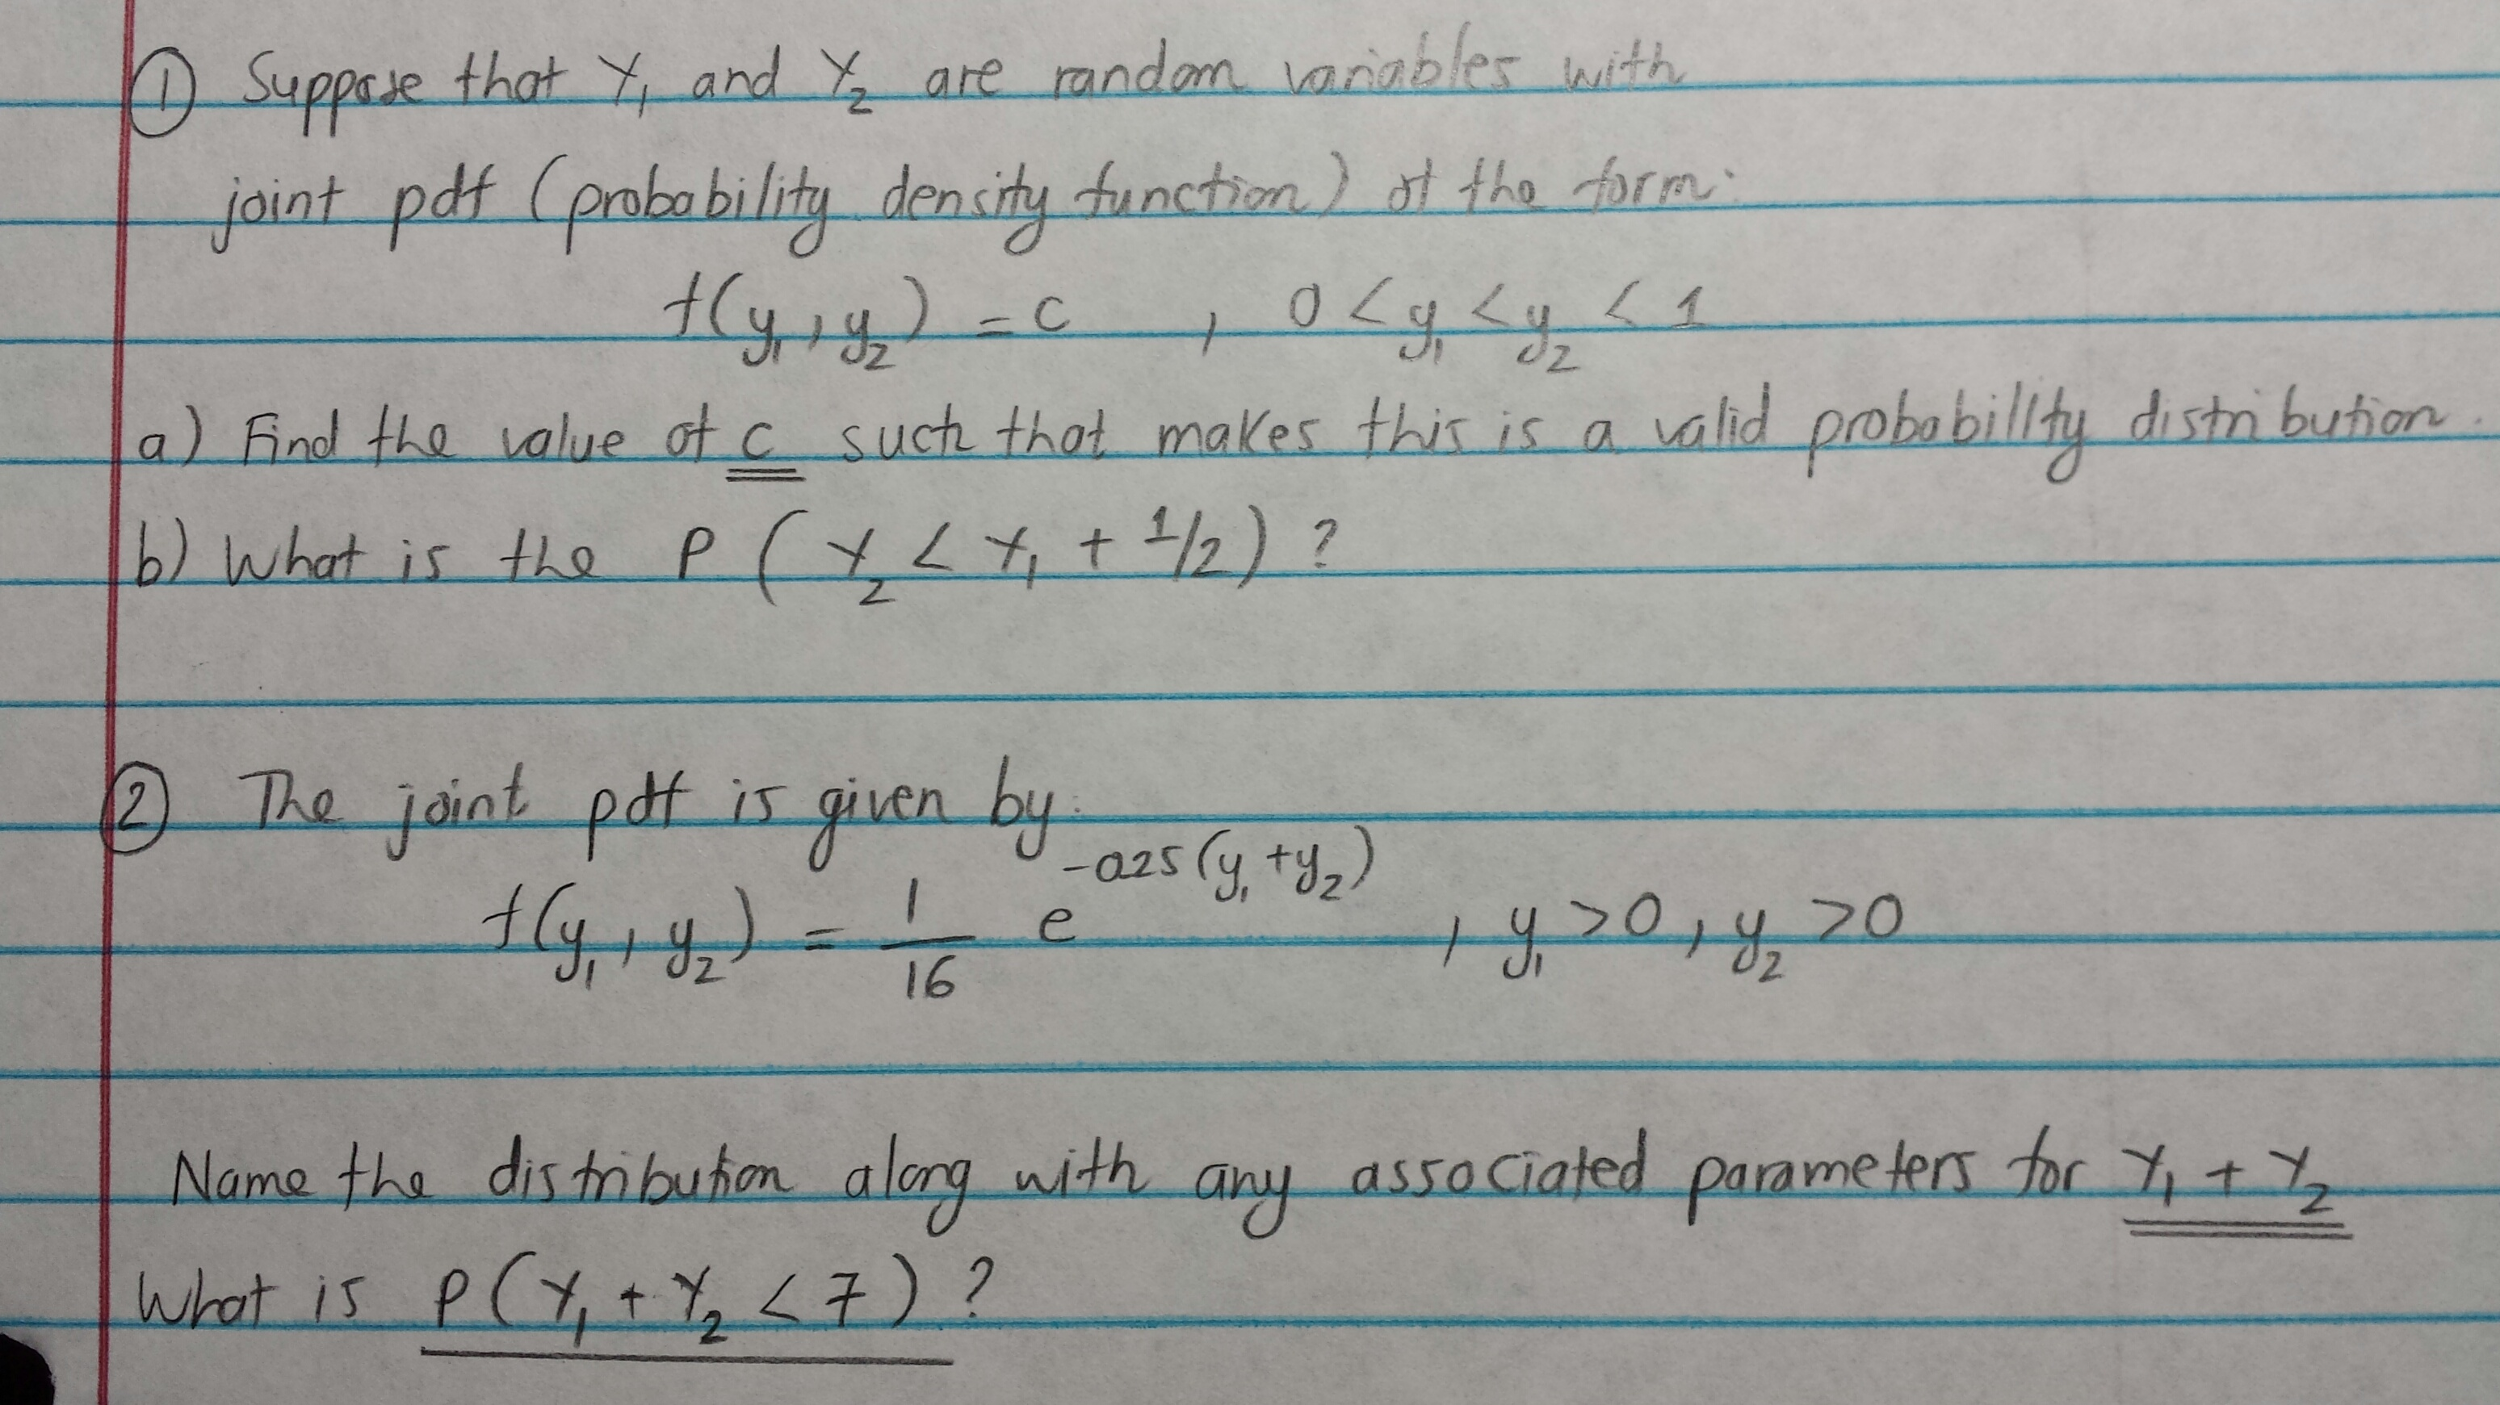 ① Suppose that Y₁ and Y₂ are random variables with
joint pdf (probability density function) of the form:
f(y₁, y₂) = c , 0 < y₁ < y₂ < 1
a) Find the value of c such that makes this is a valid probability distribution.
b) What is the P(Y₂ < Y₁ + 1/2)?
② The joint pdf is given by:
f(y₁, y₂) = 1/16 e^{-0.25(y₁+y₂)} , y₁ > 0, y₂ > 0
Name the distribution along with any associated parameters for Y₁ + Y₂
What is P(Y₁ + Y₂ < 7)?